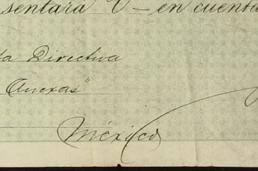 sentará V — en cuenta
ta Directiva
Anexas"
México